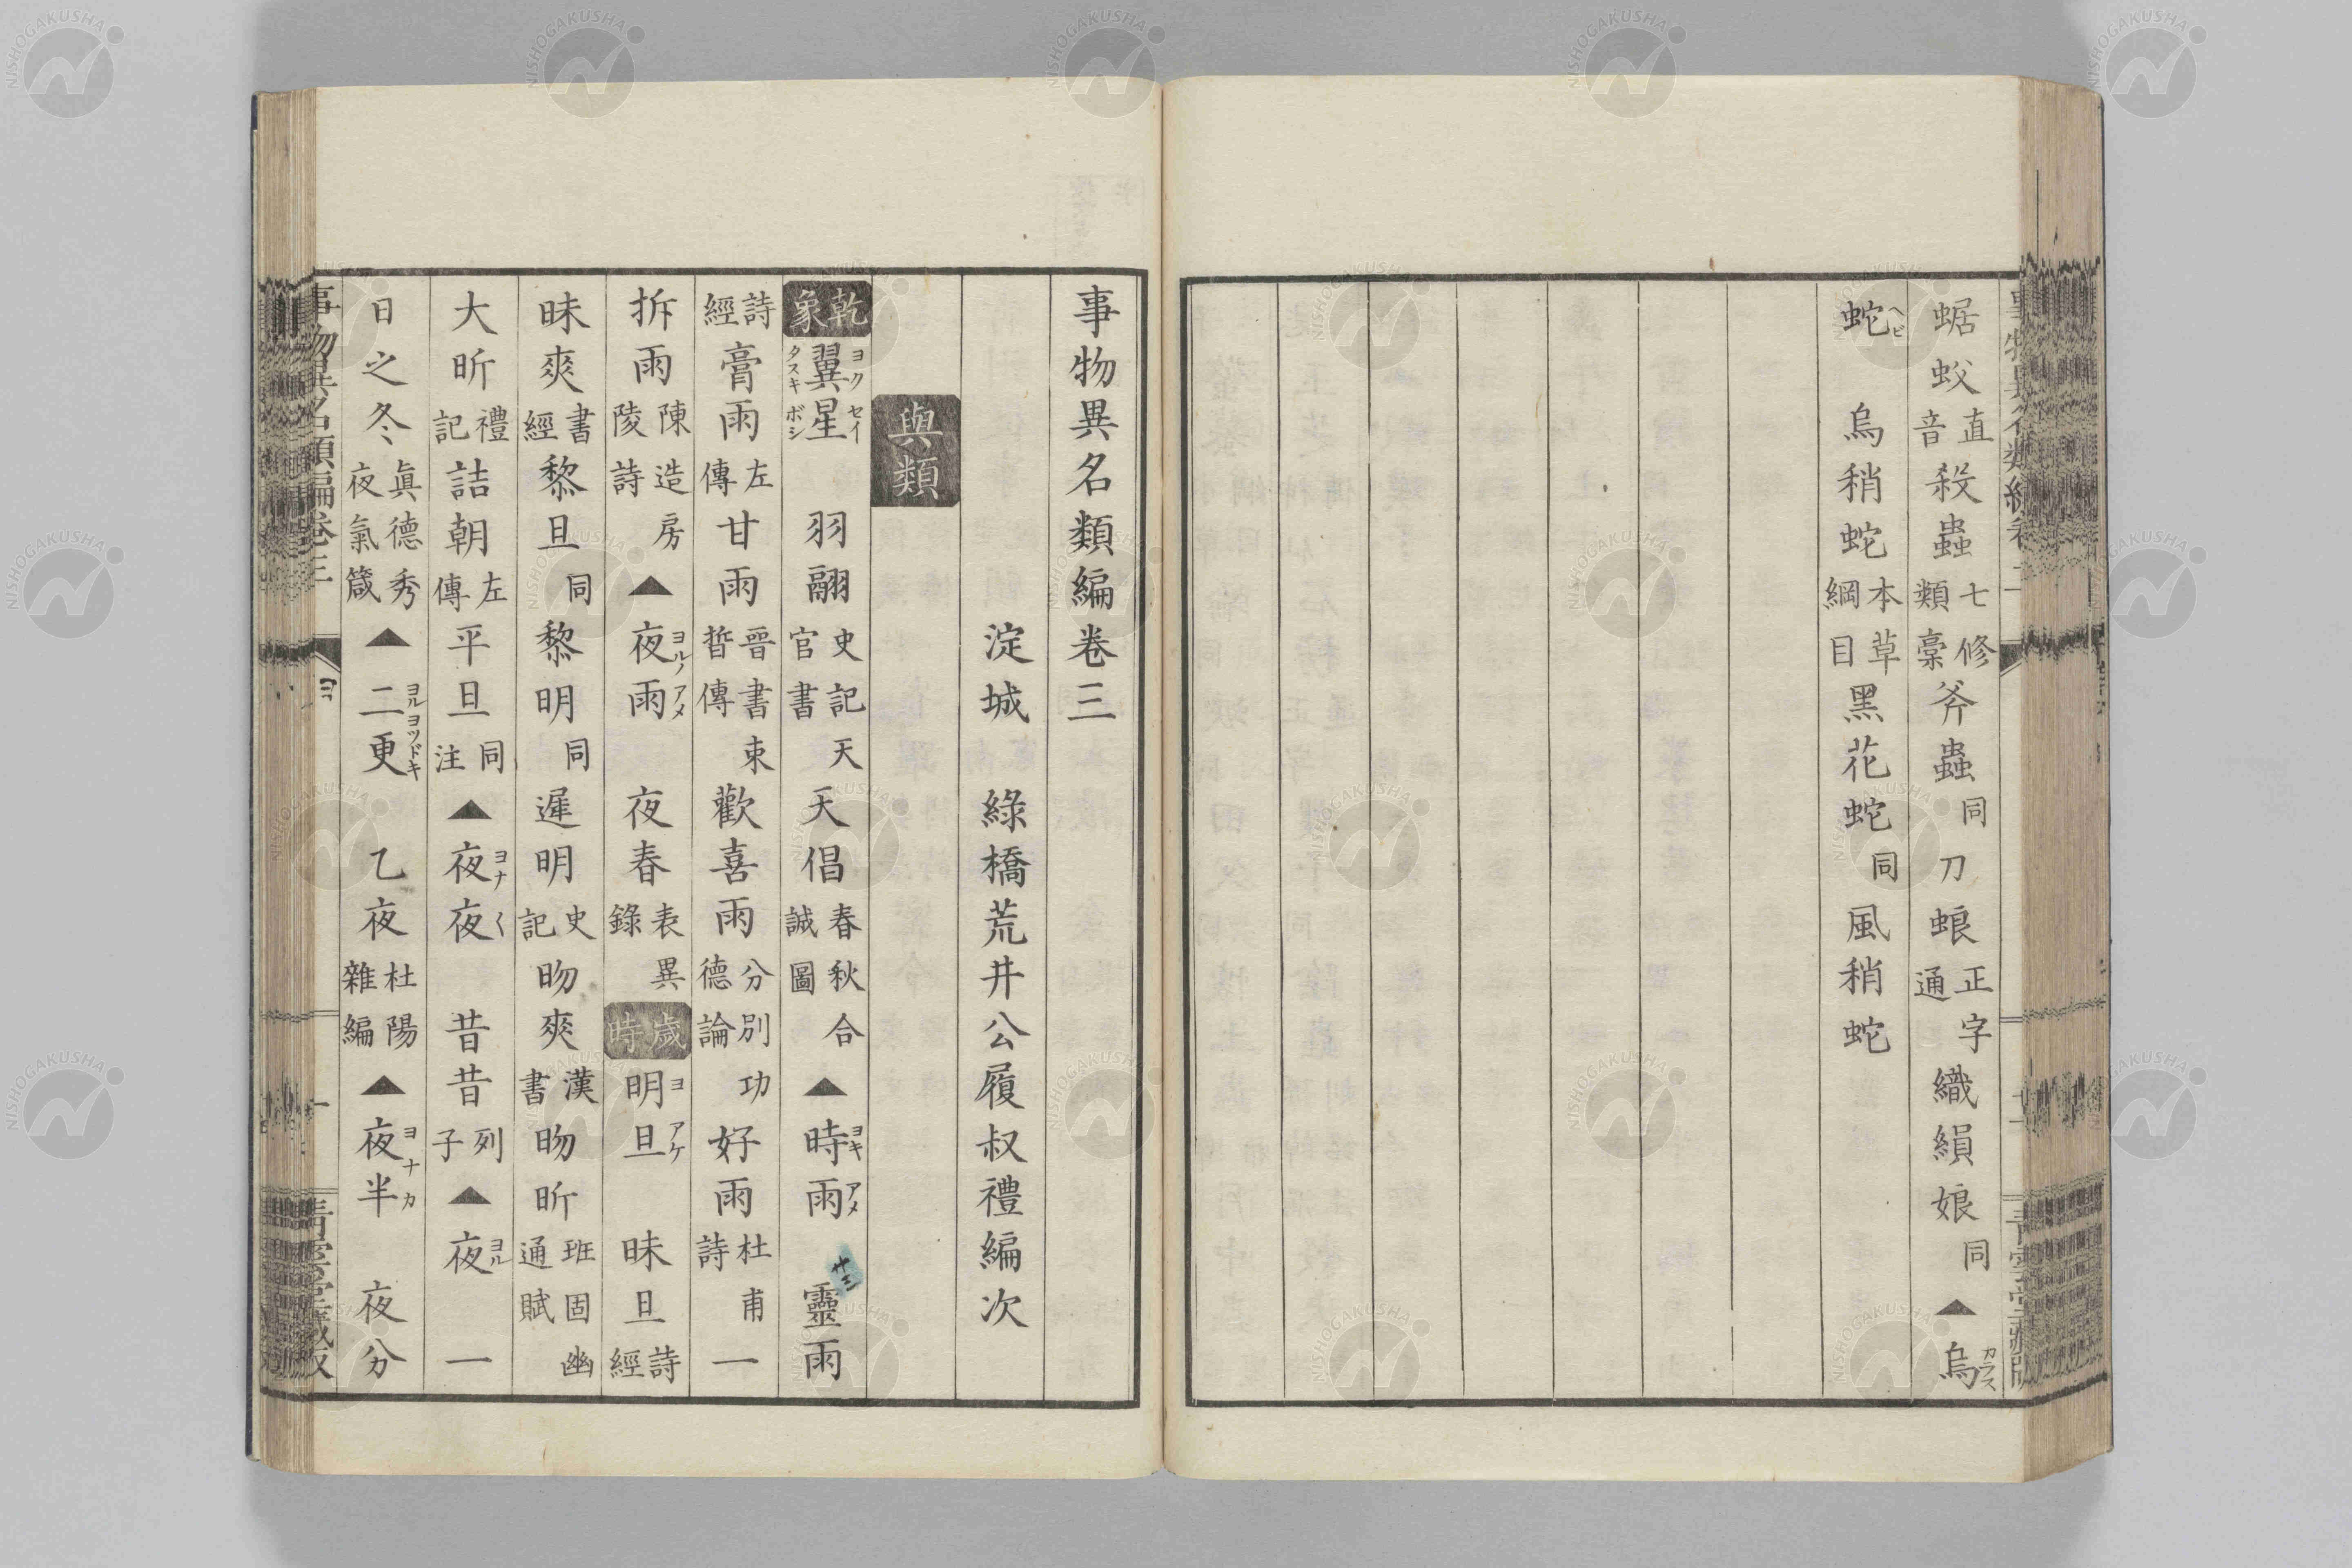 蜛蛟直音殺蟲七修類稾斧蟲同刀蜋正字通織絹娘同▲烏カラス
蛇ヘビ 烏稍蛇本草綱目黑花蛇同風稍蛇
事物異名類編卷三
淀城 綠橋荒井公履叔禮編次
與類
乾象 翼ヨク星セイタスキボシ 羽翮史記天官書天倡春秋合誠圖▲時雨ヨキアメ 靈雨
廿三
詩經膏雨左傳甘雨晉書束晳傳歡喜雨分別功德論好雨杜甫詩一
拆雨陳造房陵詩▲夜雨ヨルノアメ 夜春表異錄 歲時 明旦ヨアケ 昧旦詩經
昧爽書經黎旦同黎明同遲明史記昒爽漢書昒昕班固幽通賦
大昕禮記詰朝左傳平旦同注▲夜夜ヨナ〱 昔昔列子▲夜ヨル 一
日之冬眞德秀夜氣箴▲二更ヨルヨツドキ 乙夜杜陽雜編▲夜半ヨナカ 夜分
事物異名類編卷三 ヨ 一 青雲堂藏版
NISHOGAKUSHA